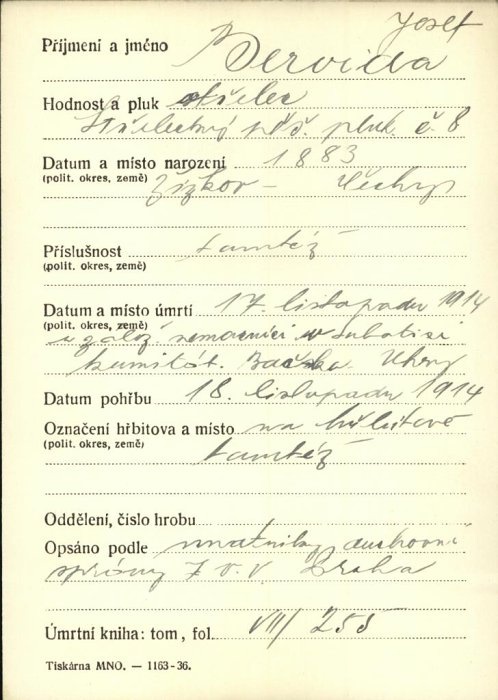 Josef
Příjmení a jméno Bervida
Hodnost a pluk střelec
Střelecký pěš. pluk. č 8
Datum a místo narození 1883
(polit. okres, země) Žižkov – Čechy
Příslušnost tamtéž
(polit. okres, země)
Datum a místo úmrtí 17. listopadu 1914
(polit. okres, země)
v zálož. nemocnici v Subotici
komitát. Bačka Uhry
Datum pohřbu 18. listopadu 1914
Označení hřbitova a místo na hřbitově
(polit. okres, země) tamtéž
Oddělení, číslo hrobu
Opsáno podle matriky duchovní
správy Z. v. v Praha
Úmrtní kniha: tom, fol. VII/ 255
Tiskárna MNO. — 1163-36.